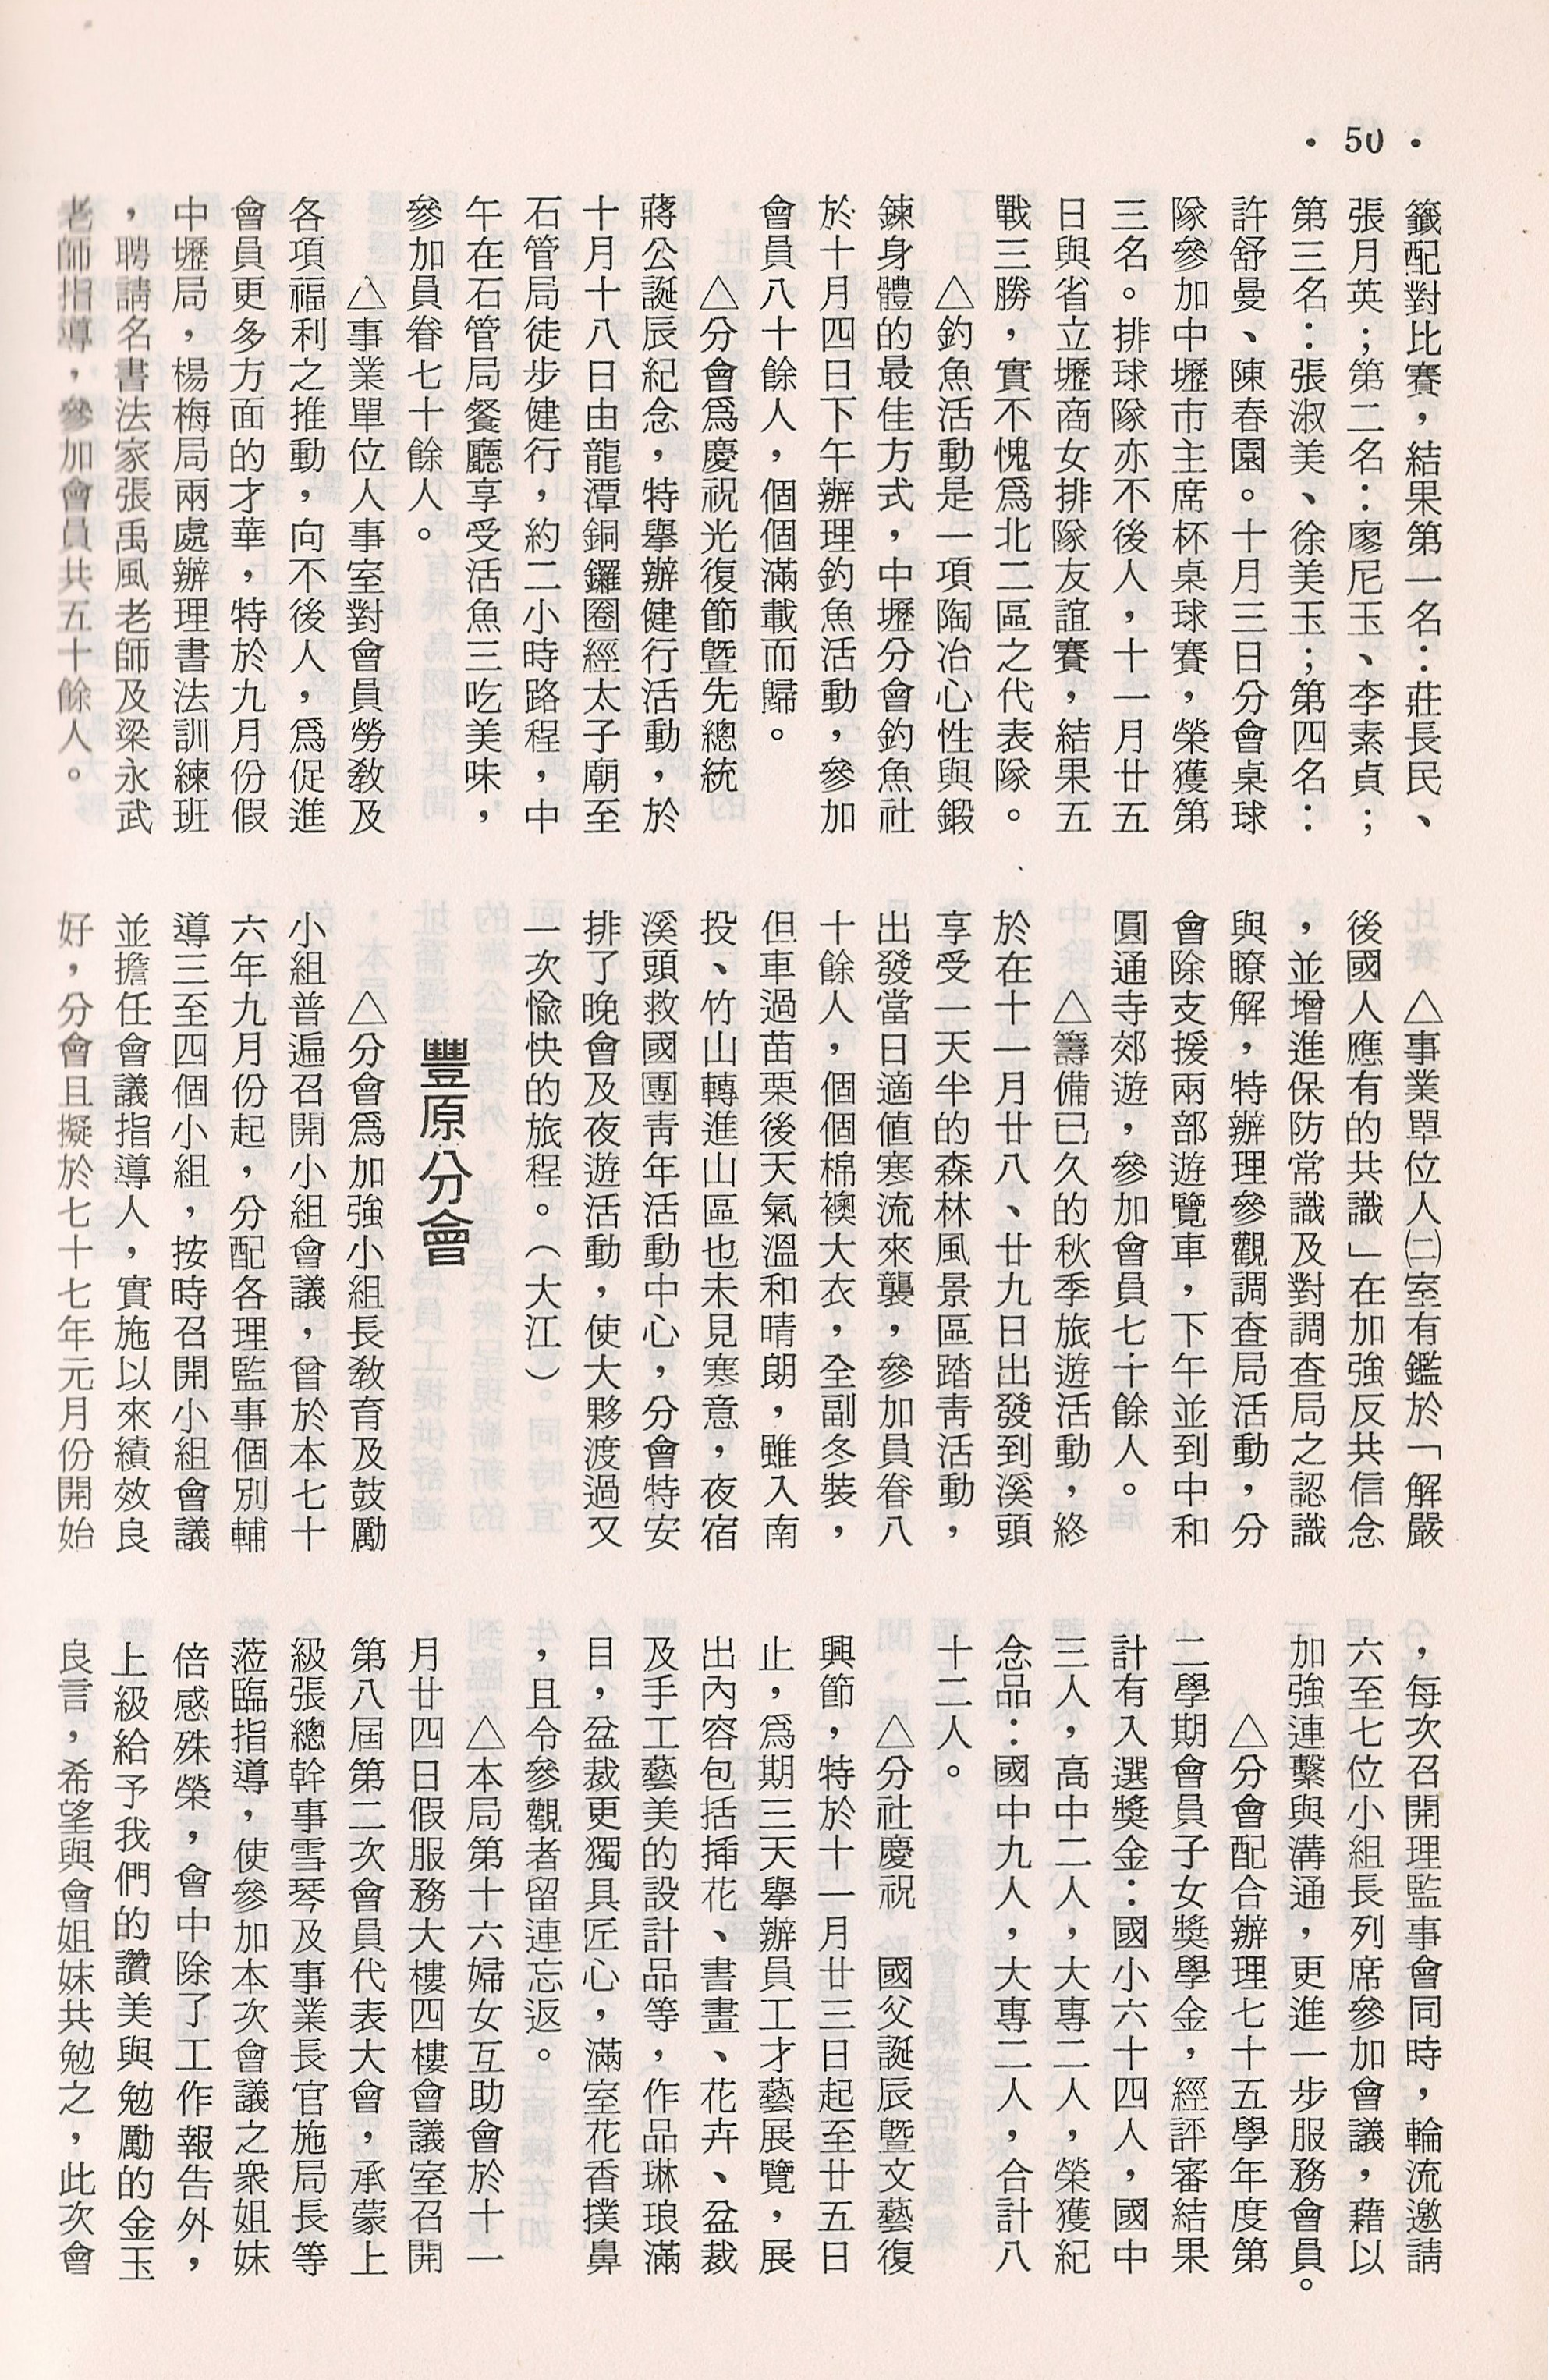 • 50 •
籤配對比賽，結果第一名：莊長民、
張月英；第二名：廖尼玉、李素貞；
第三名：張淑美、徐美玉；第四名：
許舒曼、陳春園。十月三日分會桌球
隊參加中壢市主席杯桌球賽，榮獲第
三名。排球隊亦不後人，十一月廿五
日與省立壢商女排隊友誼賽，結果五
戰三勝，實不愧爲北二區之代表隊。
△釣魚活動是一項陶冶心性與鍛
鍊身體的最佳方式，中壢分會釣魚社
於十月四日下午辦理釣魚活動，參加
會員八十餘人，個個滿載而歸。
△分會爲慶祝光復節曁先總統
蔣公誕辰紀念，特舉辦健行活動，於
十月十八日由龍潭銅鑼圈經太子廟至
石管局徒步健行，約二小時路程，中
午在石管局餐廳享受活魚三吃美味，
參加員眷七十餘人。
△事業單位人事室對會員勞敎及
各項福利之推動，向不後人，爲促進
會員更多方面的才華，特於九月份假
中壢局，楊梅局兩處辦理書法訓練班
，聘請名書法家張禹風老師及梁永武
老師指導，參加會員共五十餘人。
△事業單位人㈡室有鑑於「解嚴
後國人應有的共識」在加強反共信念
，並增進保防常識及對調查局之認識
與瞭解，特辦理參觀調查局活動，分
會除支援兩部遊覽車，下午並到中和
圓通寺郊遊，參加會員七十餘人。
△籌備已久的秋季旅遊活動，終
於在十一月廿八、廿九日出發到溪頭
享受一天半的森林風景區踏靑活動，
出發當日適値寒流來襲，參加員眷八
十餘人，個個棉襖大衣，全副冬裝，
但車過苗栗後天氣溫和晴朗，雖入南
投、竹山轉進山區也未見寒意，夜宿
溪頭救國團靑年活動中心，分會特安
排了晚會及夜遊活動，使大夥渡過又
一次愉快的旅程。（大江）
豐原分會
△分會爲加強小組長敎育及鼓勵
小組普遍召開小組會議，曾於本七十
六年九月份起，分配各理監事個別輔
導三至四個小組，按時召開小組會議
並擔任會議指導人，實施以來績效良
好，分會且擬於七十七年元月份開始
，每次召開理監事會同時，輪流邀請
六至七位小組長列席參加會議，藉以
加強連繫與溝通，更進一步服務會員。
△分會配合辦理七十五學年度第
二學期會員子女獎學金，經評審結果
計有入選獎金：國小六十四人，國中
三人，高中二人，大專二人，榮獲紀
念品：國中九人，大專二人，合計八
十二人。
△分社慶祝　國父誕辰曁文藝復
興節，特於十一月廿三日起至廿五日
止，爲期三天舉辦員工才藝展覽，展
出內容包括揷花、書畫、花卉、盆裁
及手工藝美的設計品等，作品琳琅滿
目，盆裁更獨具匠心，滿室花香撲鼻
，且令參觀者留連忘返。
△本局第十六婦女互助會於十一
月廿四日假服務大樓四樓會議室召開
第八屆第二次會員代表大會，承蒙上
級張總幹事雪琴及事業長官施局長等
蒞臨指導，使參加本次會議之衆姐妹
倍感殊榮，會中除了工作報告外，
上級給予我們的讚美與勉勵的金玉
良言，希望與會姐妹共勉之，此次會